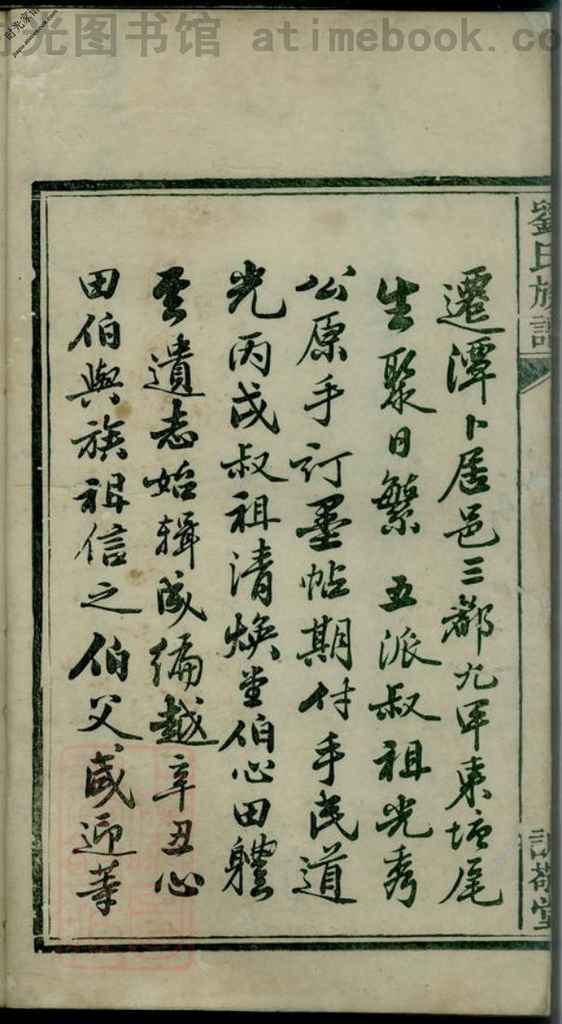 时光图书馆 atimebook.com
劉氏族譜
遷潭卜居邑三都九甲東塘尾
生聚日繁五派叔祖光秀
公原手訂墨帖期付手民道
光丙戌叔祖清煥堂伯心田體
雲遺志始輯成編越辛丑心
田伯與族祖信之伯父咸迎等
敬堂